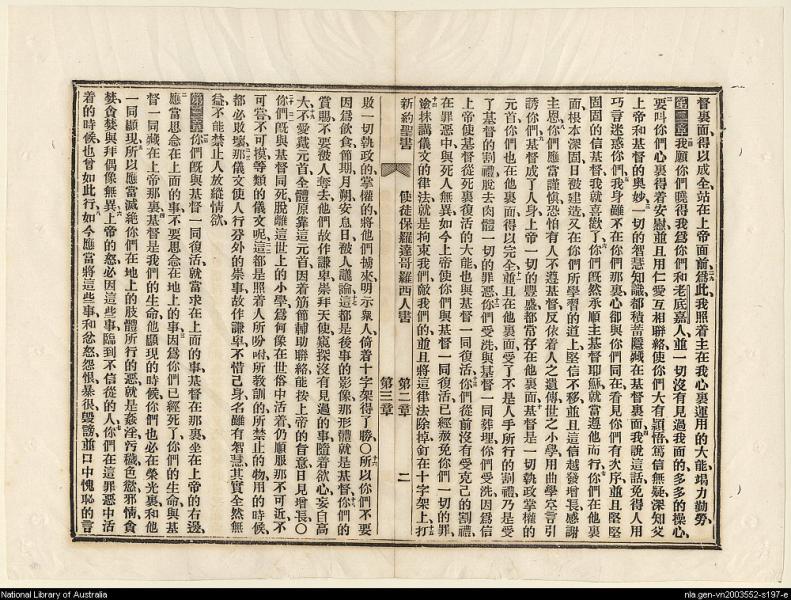 督裏面得以成全站在上帝面前爲此我照着主在我心裏運用的大能竭力勤勞
第二章我願你們曉得我爲你們和老底嘉人並一切沒有見過我面的多多的操心
要叫你們心裏得着安慰並且用仁愛互相聯絡使你們大有穎悟篤信無疑深知父
上帝和基督的奧妙一切的智慧知識都積蓄隱藏在基督裏面我說這話免得人用
巧言迷惑你們我身雖不在你們那裏心卻與你們同在看見你們有次序並且堅堅
固固的信基督我就喜歡了你們既然承順主基督耶穌就當遵他而行你們在他裏
面根本深固日被建造又在你們所學習的道上堅信不移並且這信越發增長感謝
主恩你們應當謹慎恐怕有人不遵基督反依着人之遺傳世之小學用曲學空言引
誘你們基督成了人身上帝一切的豐盛都常存在他裏面基督是一切執政掌權的
元首你們也在他裏面得以完全並且在他裏面受了不是人手所行的割禮乃是受
了基督的割禮脫去肉體一切的罪惡你們受洗與基督一同葬埋你們受洗因爲信
上帝使基督從死裏復活的大能也與基督一同復活你們從前沒有受克己的割禮
在罪惡中與死人無異如今上帝使你們與基督一同復活已經赦免你們一切的罪
塗抹講儀文的律法就是拘束我們敵我們的並且將這律法除掉釘在十字架上打
新約聖書 使徒保羅達哥羅西人書 第二章 第三章 二
敗一切執政的掌權的將他們擄來明示衆人倚着十字架得了勝〇所以你們不要
因爲飲食節期月朔安息日被人議論這都是後事的影像那形體就是基督你們的
賞賜不要被人奪去他們故作謙卑崇拜天使窺探沒有見過的事隨着欲心妄自高
大不愛戴元首全體原靠這元首因着筋節輔助聯絡能按上帝的旨意日見增長〇
你們既與基督同死脫離這世上的小學爲何像在世俗中活着仍順服那不可近不
可嘗不可摸等類的儀文呢這都是照着人所吩咐所教訓的所禁止的物用的時候
都必敗壞那儀文使人行分外的崇事故作謙卑不惜己身名雖有智慧其實全然無
益不能禁止人放縱情欲
第三章你們既與基督一同復活就當求在上面的事基督在那裏坐在上帝的右邊
應當思念在上面的事不要思念在地上的事因爲你們已經死了你們的生命與基
督一同藏在上帝那裏基督是我們的生命他顯現的時候你們也必在榮光裏和他
一同顯現所以應當滅絕你們在地上的肢體所行的惡就是姦淫污穢色慾邪情貪
婪貪婪與拜偶像無異上帝的怒必因這些事臨到不信從的人你們在這罪惡中活
着的時候也曾如此行如今應當將這些事和忿怒怨恨暴很毀謗並口中愧恥的言
National Library of Australia
nla.gen-vn2003552-s197-e